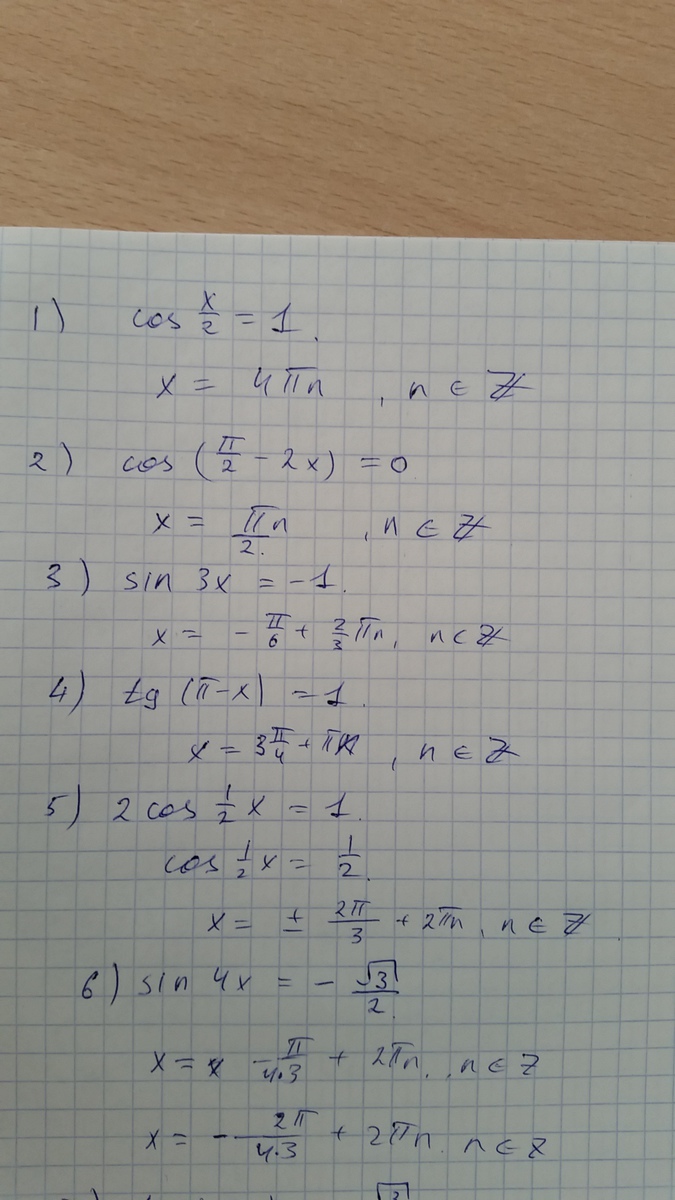 1) cos x/2 = 1.
x = 4πn, n ∈ Z
2) cos (π/2 - 2x) = 0
x = πn/2., n ∈ Z
3) sin 3x = -1.
x = -π/6 + 2/3 πn, n ∈ Z
4) tg (π-x) = 1.
x = 3π/4 + πn, n ∈ Z
5) 2 cos 1/2 x = 1.
cos 1/2 x = 1/2.
x = ± 2π/3 + 2πn, n ∈ Z.
6) sin 4x = - √3/2.
x = -π/4·3 + 2πn., n ∈ Z
x = - 2π/4·3 + 2πn. n ∈ Z